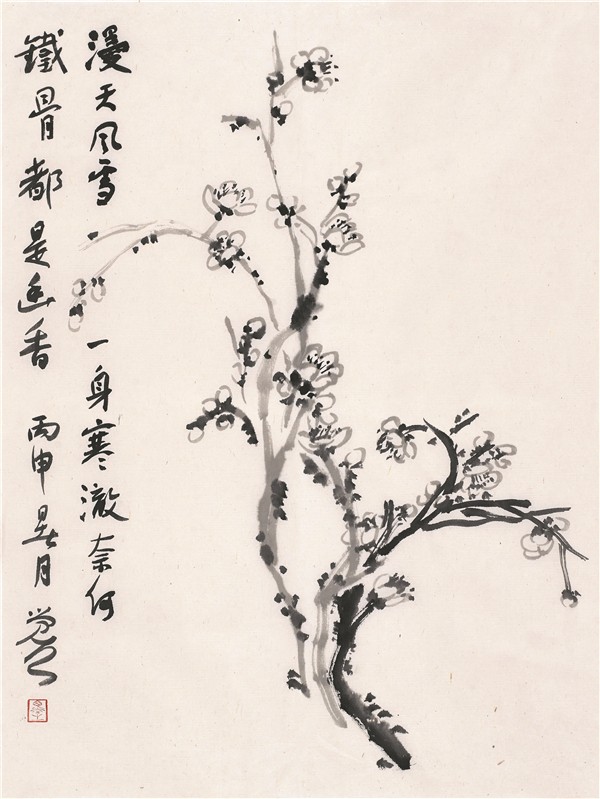 漫天风雪 一身寒澈奈何
鐵骨都是幽香 丙申 月